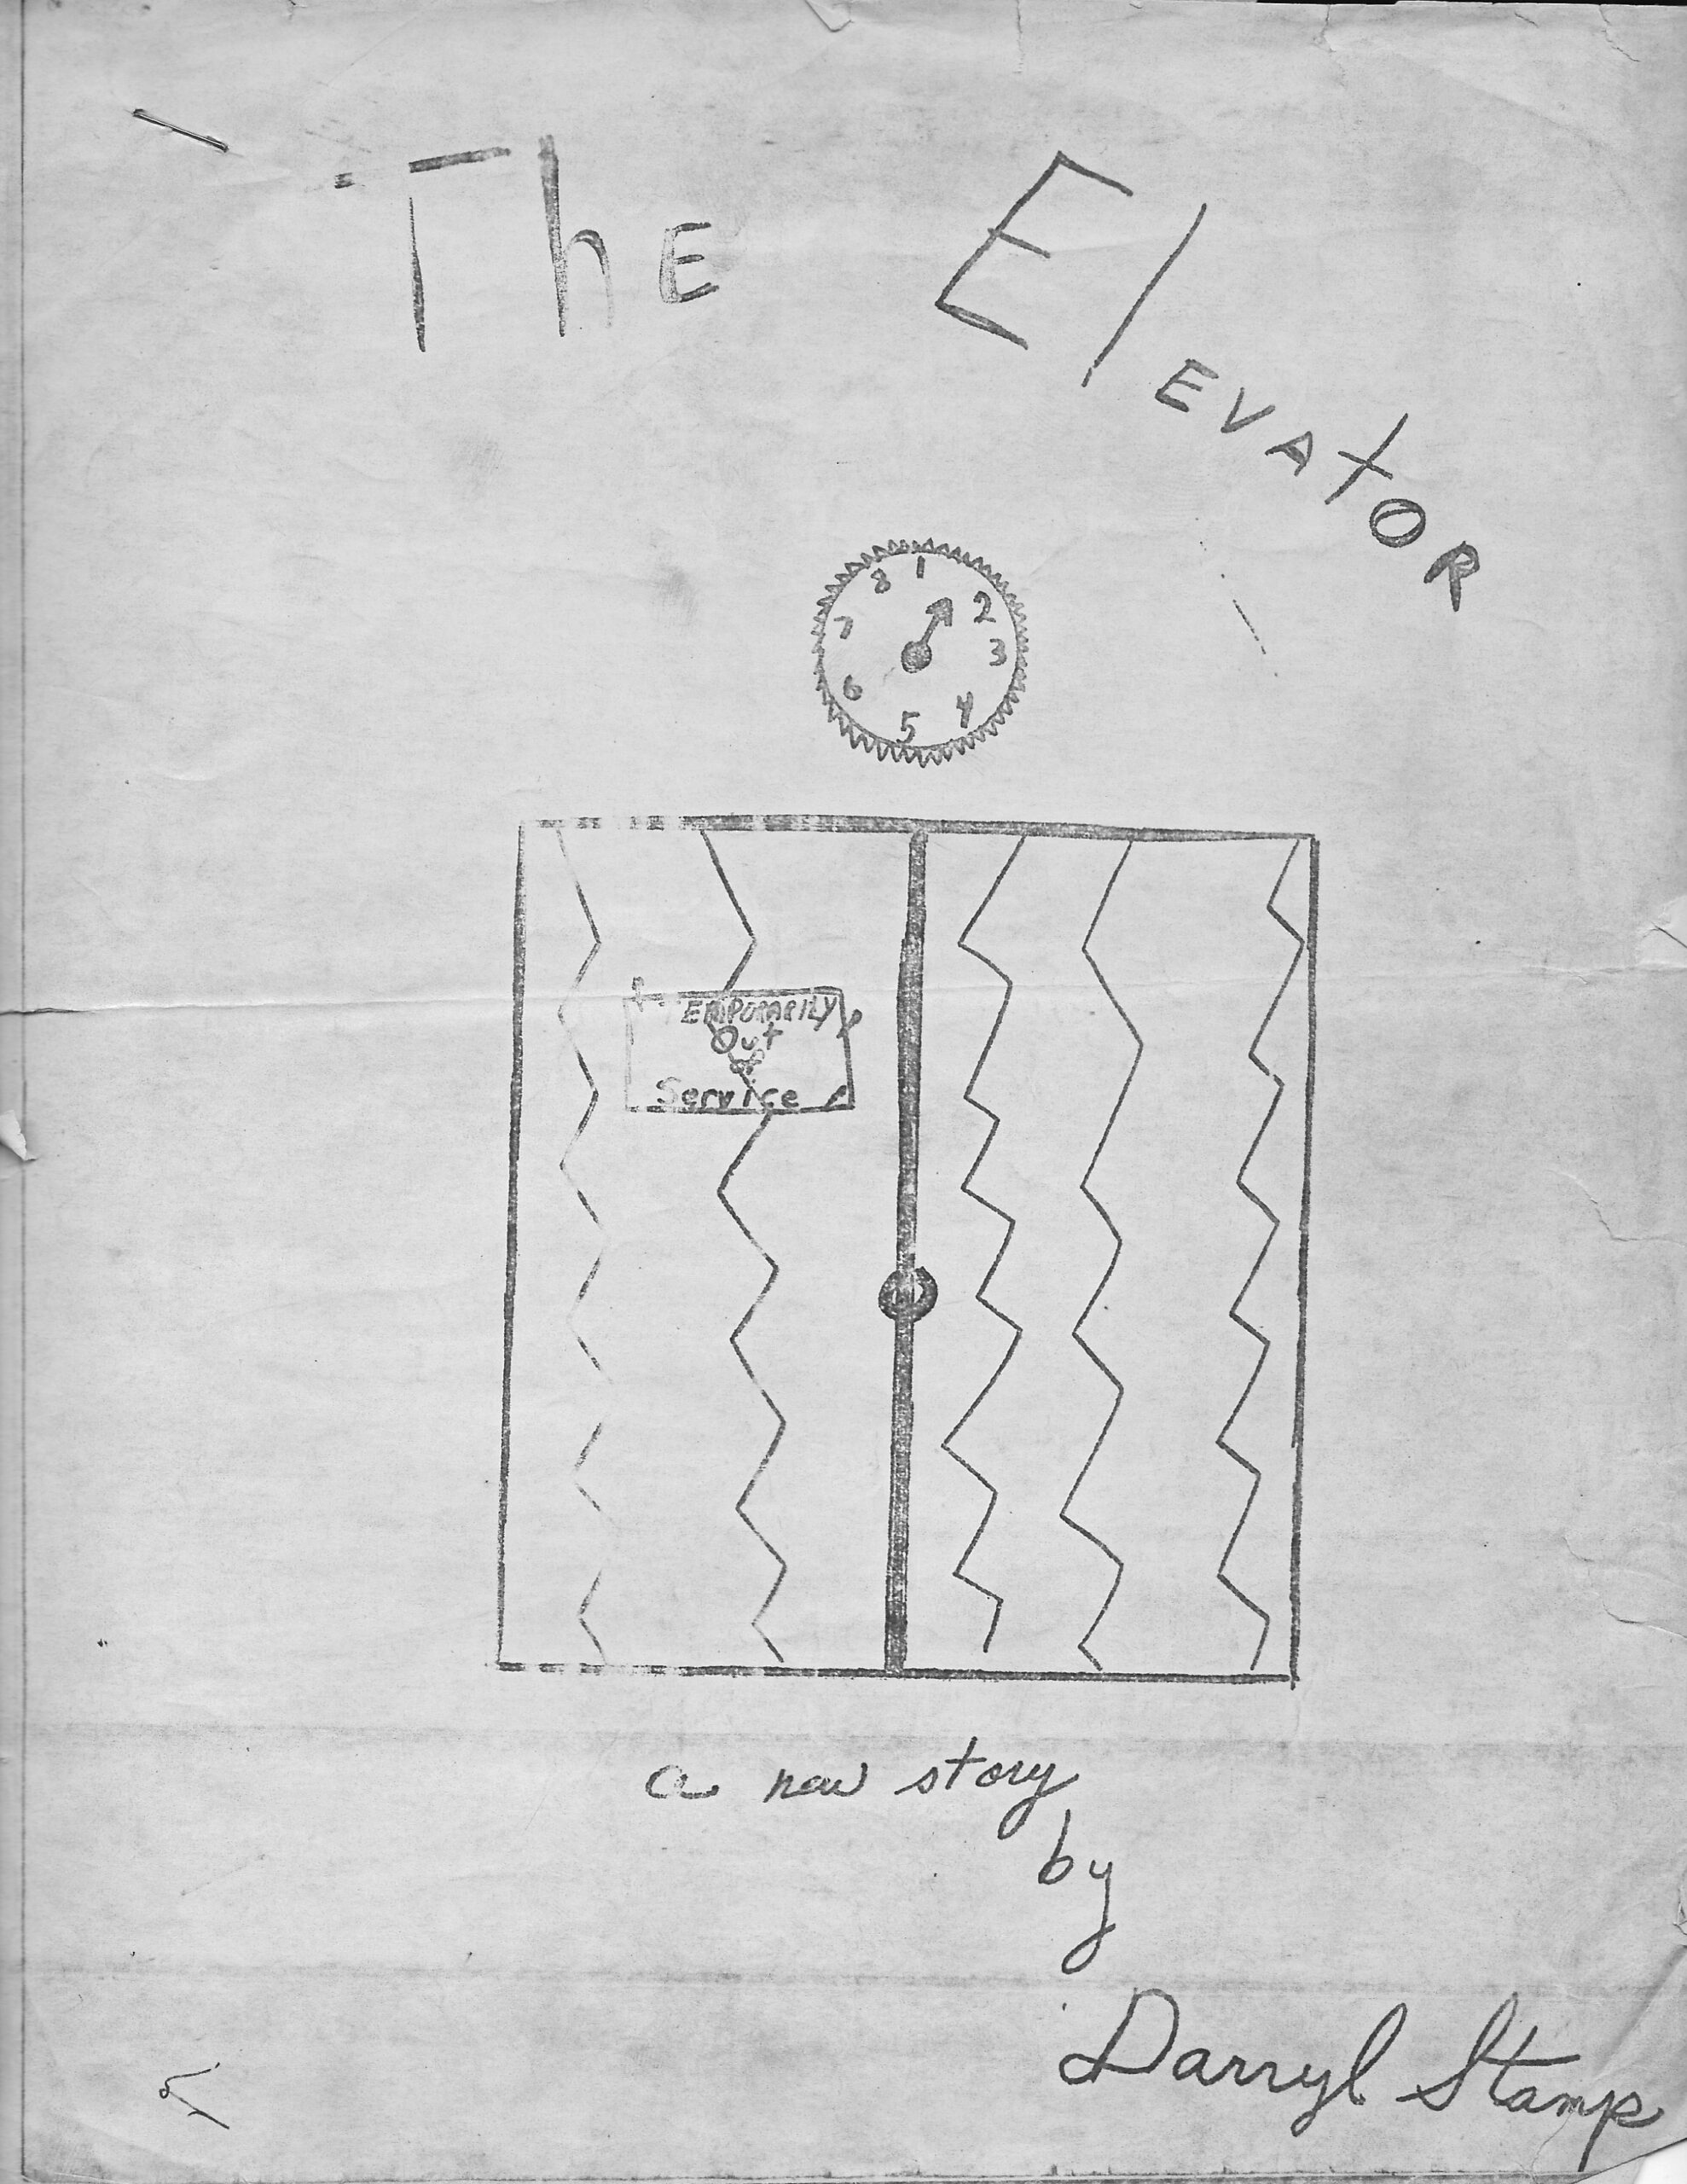 The Elevator
8 1 2
7 3
6 4
5
TEMPORARILY
Out
of
Service
a new story
by
Darryl Stamp